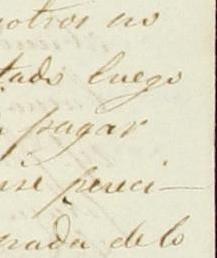 otros no
tado luego
pagar
se pereci-
rada de lo